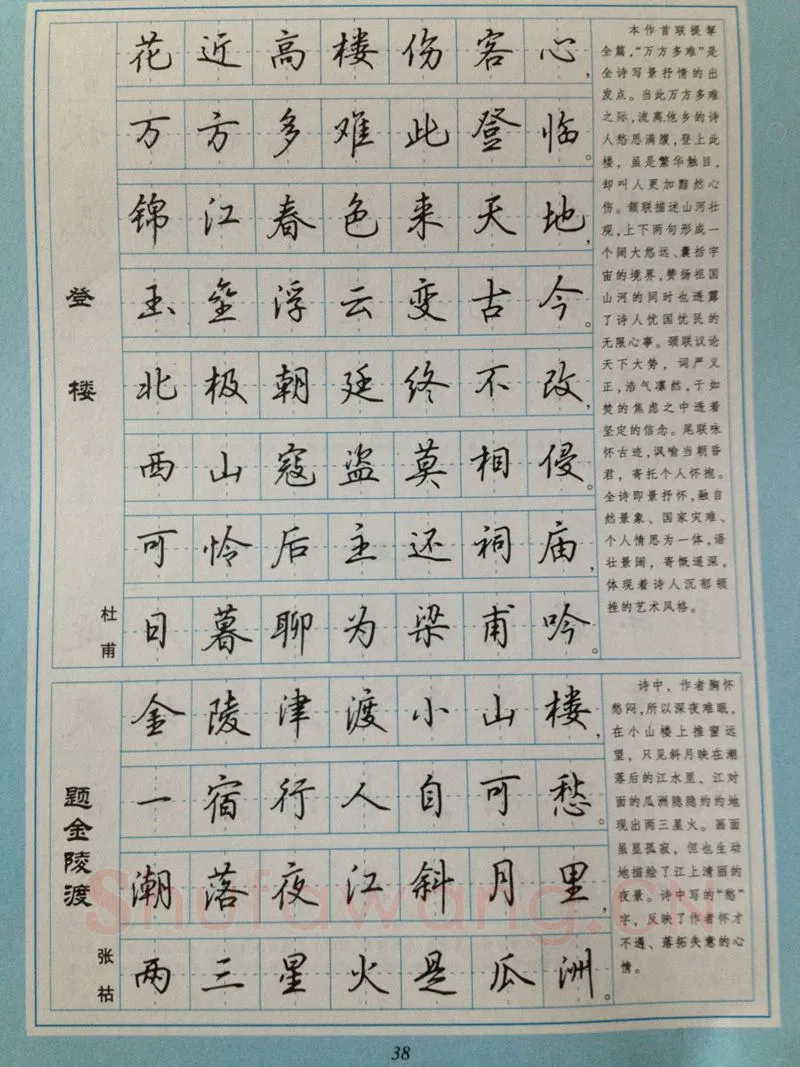 登楼
杜甫
花近高楼伤客心，
万方多难此登临。
锦江春色来天地，
玉垒浮云变古今。
北极朝廷终不改，
西山寇盗莫相侵。
可怜后主还祠庙，
日暮聊为梁甫吟。
本作首联提挈
全篇，“万方多难”是
全诗写景抒情的出
发点。当此万方多难
之际，流离他乡的诗
人愁思满腹，登上此
楼，虽是繁华触目，
却叫人更加黯然心
伤。颔联描述山河壮
观，上下两句形成一
个阔大悠远、囊括宇
宙的境界，赞扬祖国
山河的同时也透露
了诗人忧国忧民的
无限心事。颈联议论
天下大势，词严义
正，浩气凛然，于如
焚的焦虑之中透着
坚定的信念。尾联咏
怀古迹，讽喻当朝昏
君，寄托个人怀抱。
全诗即景抒怀，融自
然景象、国家灾难、
个人情思为一体，语
壮景阔，寄慨遥深，
体现着诗人沉郁顿
挫的艺术风格。
题金陵渡
张祜
金陵津渡小山楼，
一宿行人自可愁。
潮落夜江斜月里，
两三星火是瓜洲。
诗中，作者胸怀
愁闷，所以深夜难眠，
在小山楼上推窗远
望，只见斜月映在潮
落后的江水里，江对
面的瓜洲隐隐约约地
现出两三星火。画面
虽显孤寂，但也生动
地描绘了江上清丽的
夜景。诗中写的“愁”
字，反映了作者怀才
不遇、落拓失意的心
情。
Shufawang.CN
38